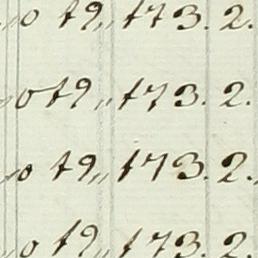 „o 19„ 173. 2.
„o 19„ 173. 2.
„o 19„ 173. 2.
„o 19„ 173. 2.